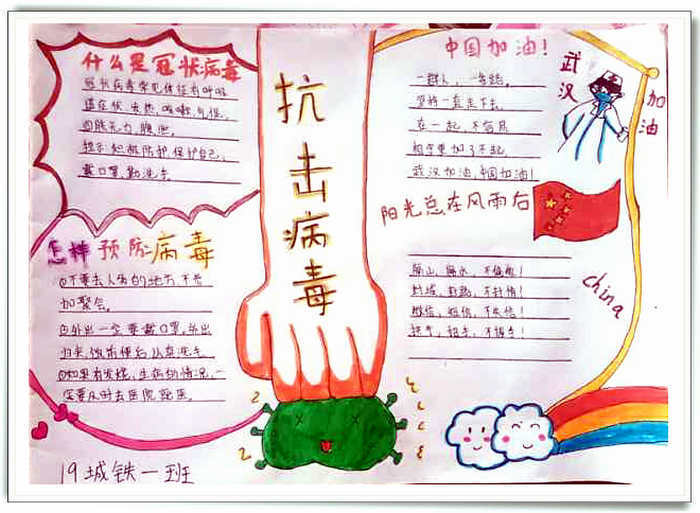 什么是冠状病毒
冠状病毒常见体征有呼吸
道症状、发热、咳嗽、气促、
四肢乏力、腹泻。
戴口罩,勤洗手
怎样预防病毒
①不要去人多的地方,不参
加聚会。
②外出一定要戴口罩,外出
归来,饭前便后,认真洗手
③如果有发烧、生病的情况,一
定要及时去医院就医
19城铁一班
抗击病毒
中国加油!
一群人,一条路,
坚持一直走下去,
在一起,不容易
相守更加了不起
武汉加油,中国加油!
武汉
加油
阳光总在风雨后
隔山,隔水,不隔爱!
封城,封路,不封情!
China